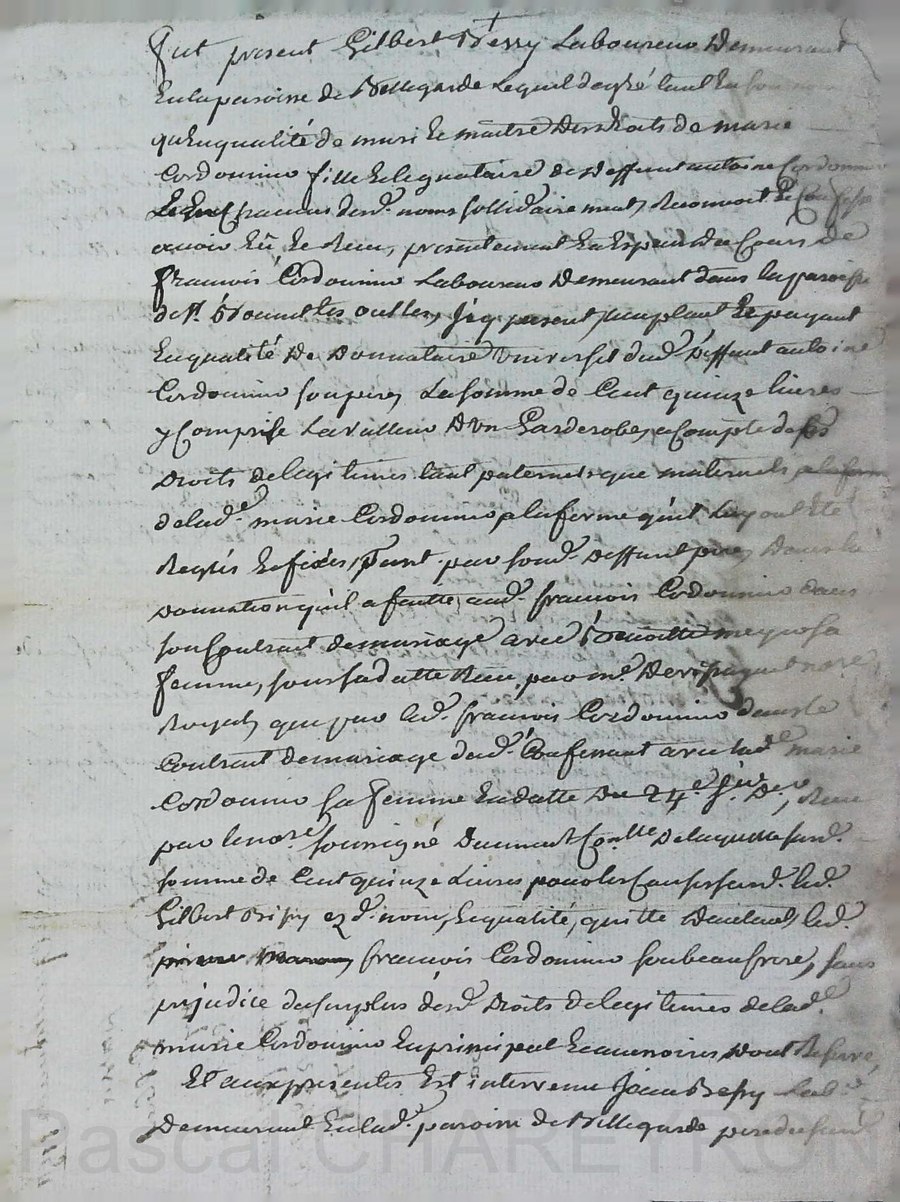 fut present Gilbert Bessy Laboureur Demeurant
En la paroisse de Bellegarde Lequel de gré tant En son nom
qu'En qualité de mari Et maitre Des droits de marie
Cordonnino fille Et legataire de Deffunt antoine Cordonnino
Chacuns desd. noms sollidairement, Reconnoit Et Confesse
avoir Eü Et Receu, presentement En Especes Du Cours de
francois Cordonnino Laboureur Demeurant dans la paroisse
de St. Bonnet les oulles, Icy present, acceptant Et payant
En qualité De Donnataire Universel dud. Deffunt antoine
Cordonnino son pere, La somme de Cent quinze livres
y Comprise La valleur D'un Garderobe, a Compte de ses
Droits de legitimes tant paternels que maternels
de lad.e marie Cordonnino, a la forme qu'ils Luy ont Eté
Reglés Et fixés, tant par sond. Deffunt pere, Dans la
Donnation qu'il a faitte aud. francois Cordonnino dans
son Contrat de mariage avec Benoitte
femme, sous sa datte Receu par me. notre
Royal, que par led. francois Cordonnino dans le
Contrat de mariage dud. Confessant avec lad.e marie
Cordonnino sa femme En datte Du 24.e Receu
par le no.re soussigné Duement Con.llé De laquelle susd.
somme de Cent quinze Livres pour les Causes susd. led.
Gilbert Bessy ezd. noms, Et qualité, quitte Dautant led.
francois Cordonnino son beaufrere, sans
prejudice du surplus desd. Droits de legitimes de lad.e
marie Cordonnino En principal Et accessoires, Dont Reserve
Et aux presentes Est intervenu Jean Bessy Lab.r
Demeurant En lad. paroisse de Bellegarde pere dud.
Pascal CHAREYRON